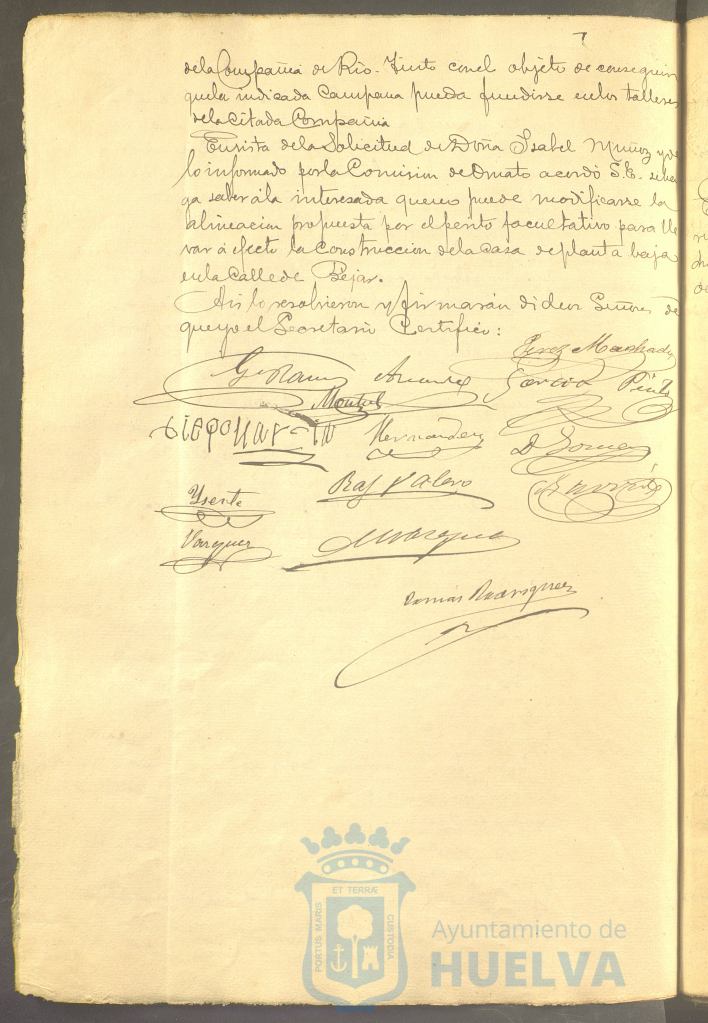 7
de la Compañia de Rio-Tinto con el objeto de conseguir
que la indicada Campana pueda fundirse en los talleres
de la citada Compañia
En vista de la Solicitud de Doña Isabel Muñoz y de
lo informado por la Comision de Ornato acordó S.E. se ha
ga saber á la interesada que no puede modificarse la
alineacion propuesta por el perito facultativo para lle
var á efecto la construccion de la casa de planta baja
en la Calle de Bejar.
Asi lo resolvieron y firmarán dichos Señores de
que yo el Secretario Certifico:
Perez Machado
Garcia Pinto
Montiel
Diego Garcia Hernandez D Gomez
Raf Valero
Ysente
Vazquez
Tomas Rodriguez
PORTUS MARIS ET TERRÆ CUSTODIA
Ayuntamiento de
HUELVA